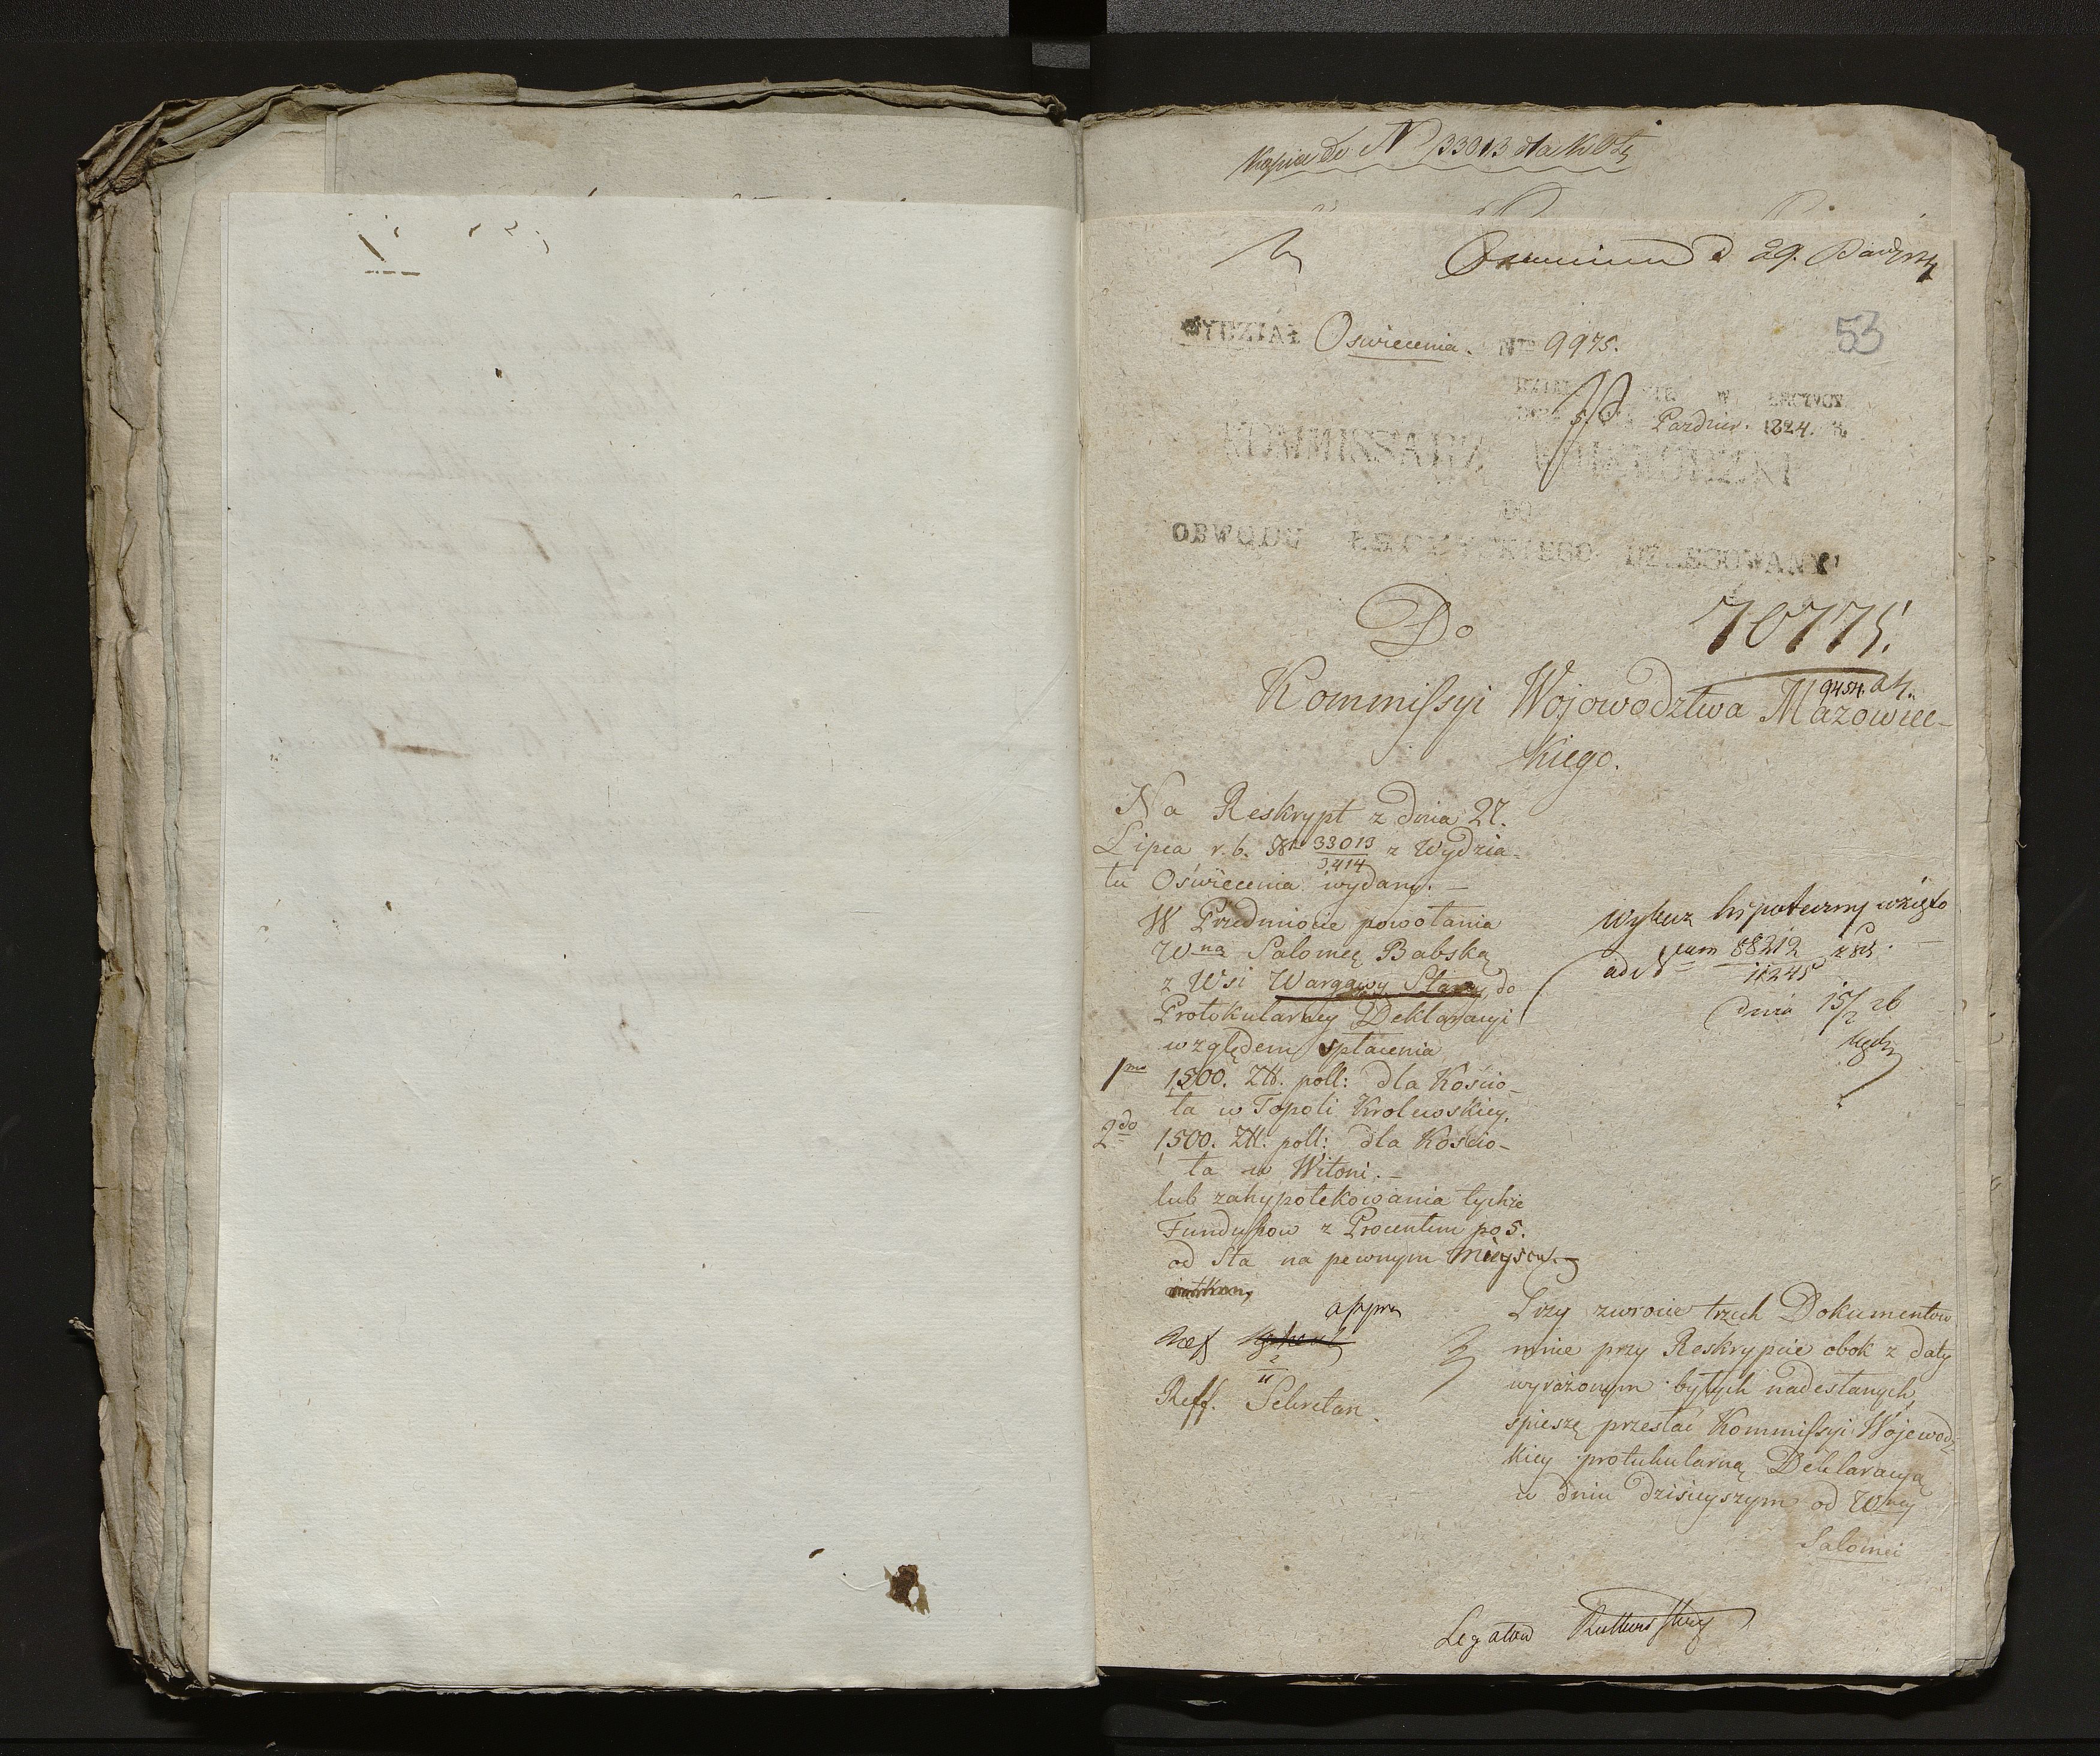 Kopia do N 33013
d 29. Paźdz 24
53
WYDZIAŁ Oswiecenia. Nro 9975.
W ŁĘCZYCY
Pazdzier. 1824. R.
KOMMISSARZ WOIEWODZKI
DO
OBWODU ŁĘCZYCKIEGO DELEGOWANY
Do
70775.
9454. 24.
Kommissyi Wojowodztwa Mazowiec-
kiego.
Na Reskrypt z dnia 27.
Lipca r. b. Nr 33013/3414 z Wydzia-
łu Oświecenia wydany. —
W Przedmiocie powołania
Wna Salomeę Babską
z Wsi Wargawy Stary, do
Protokularney Deklaracyi
względem spłacenia
1mo 1500. Złł. poll: dla Kościo-
ła w Topoli Krolewskiey.
2do 1500. Złł. poll: dla Kościo-
ła w Witoni. —
lub zahypotekowania tychże
Funduszow z Procentem po 5.
od Sta na pewnym Mieyscu. —
wykaz hipoteczny wzięto
ad Num 88212/11245
dnia 15/2 26
Reff. Sekretarz.
Przy zwrocie trzech Dokumentow
mnie przy Reskrypcie obok z daty
wyrażonym byłych nadesłanych,
spieszę przesłać Kommissyi Wojewodz-
kiey protukularną Deklaracyą
w dniu dzisieyszym od Wney
Salomei
Legatow Rutkowskiey